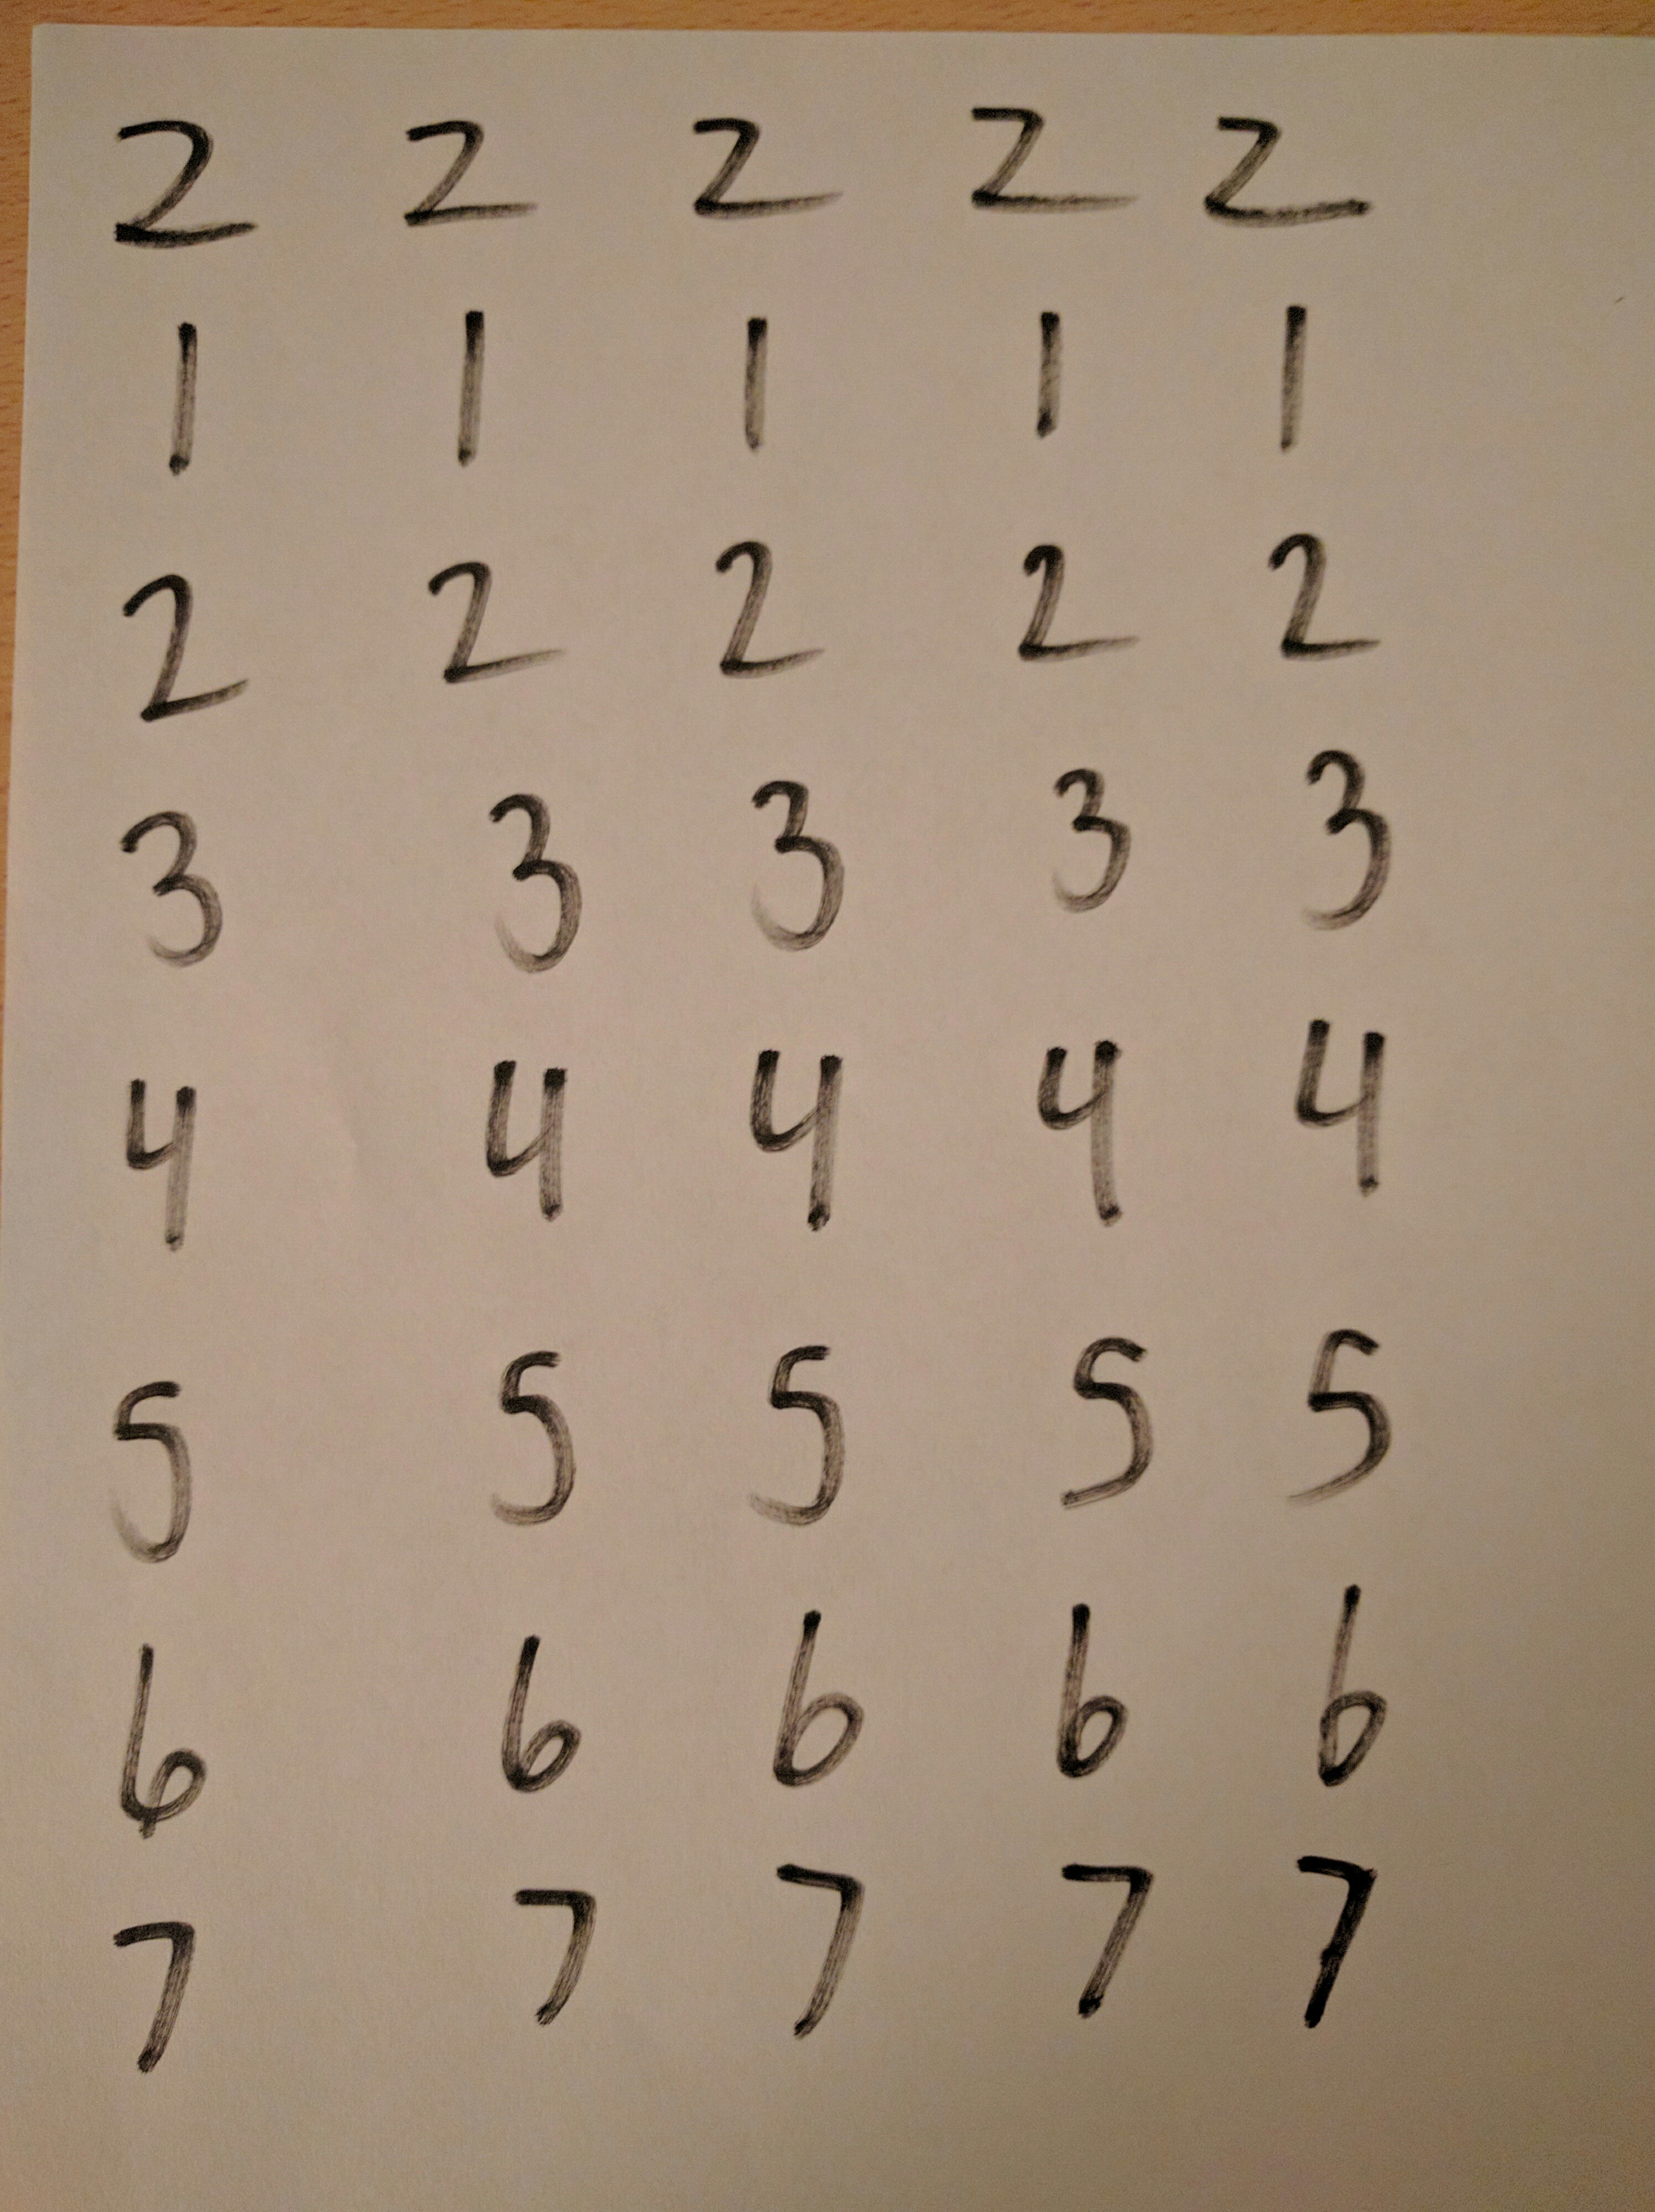 2 2 2 2 2
1 1 1 1 1
2 2 2 2 2
3 3 3 3 3
4 4 4 4 4
5 5 5 5 5
6 6 6 6 6
7 7 7 7 7